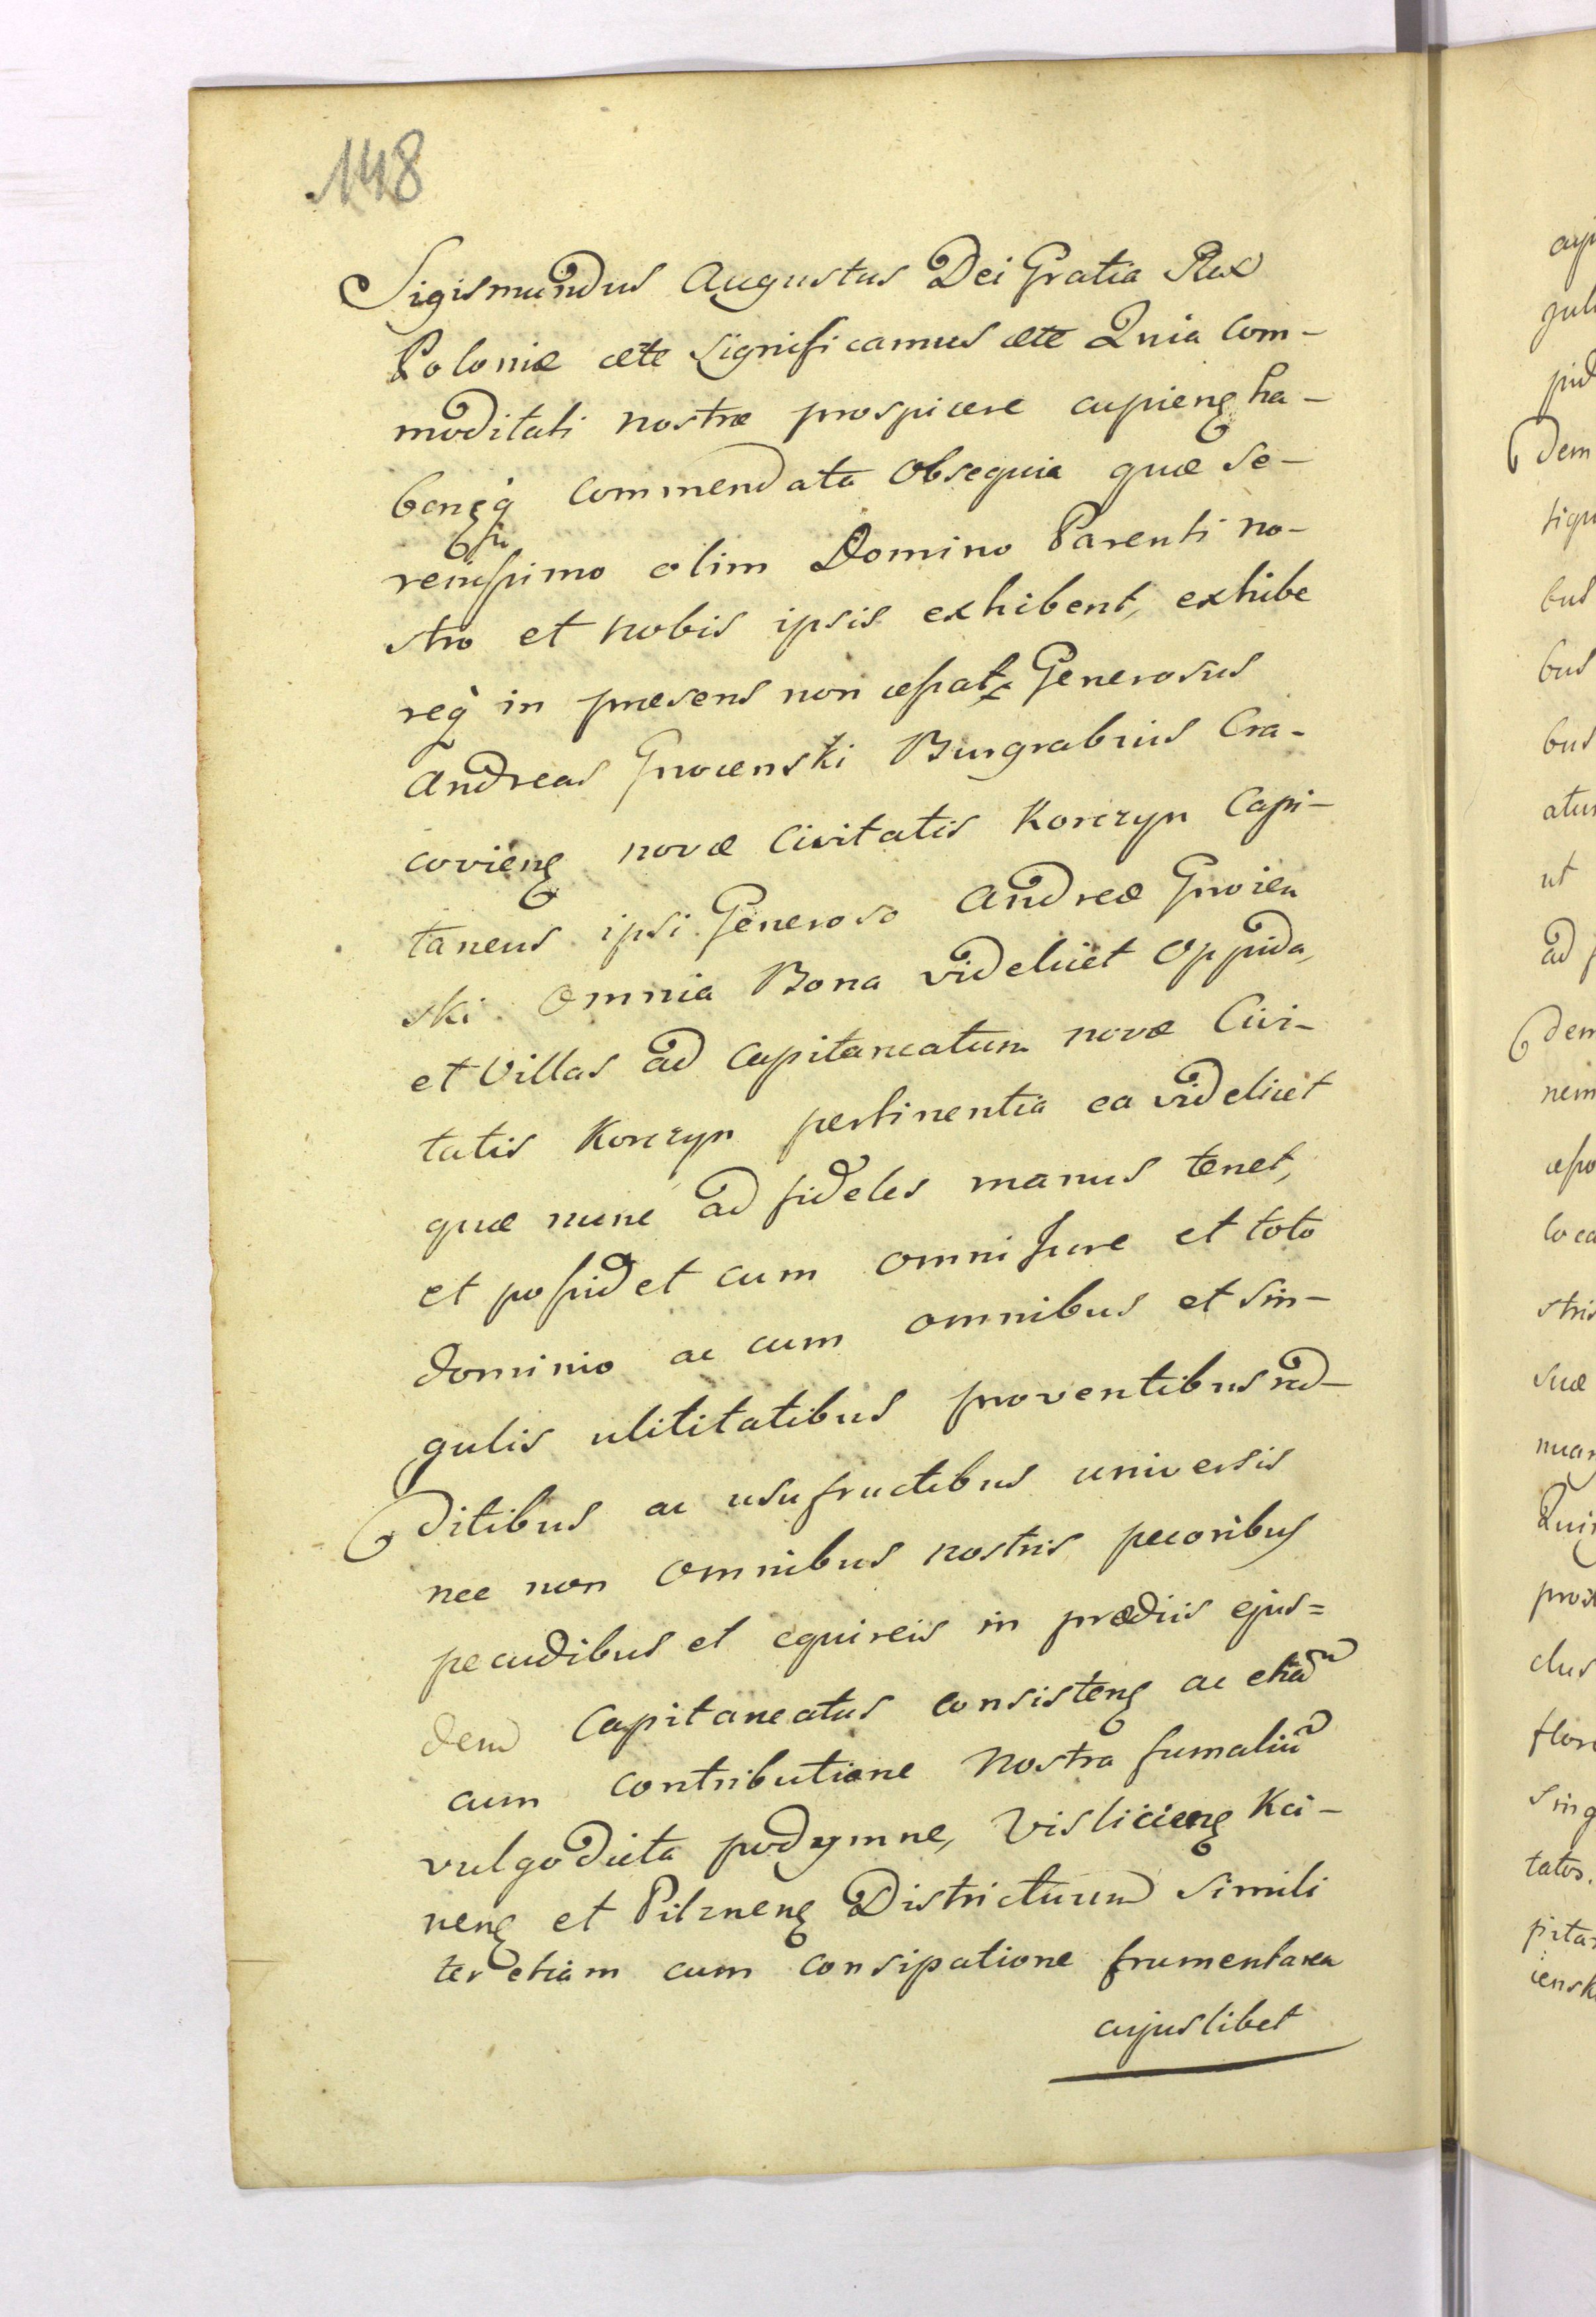 148
Sigismundus Augustus Dei Gratia Rex
Poloniæ cete significamus cete Quia Com-
moditati nostræ prospicere cupieng ha-
bengq̀ commendata Obsequia quæ Se-
renissimo olim Domino Parenti no-
stro et nobis ipsis exhibent, exhibe
req̀ in præsens non cessat, Generosus
Andreas Gnoienski Burgrabius Cra-
covieng novæ Civitatis Korczyn Capi-
taneus ipsi Generoso Andreæ Gnoien
ski omnia Bona videlicet Oppida,
et Villas ad Capitaneatum novæ Civi-
tatis Korczyn pertinentia ea videlicet
quæ nunc ad fideles manus tenet,
et possidet cum omni Jure et toto
dominio ac cum omnibus et sin-
gulis utilitatibus proventibus red-
ditibus ac usufructibus universis
nec non omnibus nostris pecoribus
pecudibus et equireis in prædiis ejus=
dem Capitaneatus consisteng ac etiam
cum contributione nostra fumalium
vulgo dicta podymne, Vislicieng Xci-
neng et Pilzneng Districtuum Simili
ter etiam cum consipatione frumentarea
cujuslibet